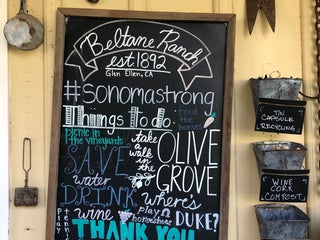 Beltane Ranch
est. 1892
Glen Ellen, CA
#sonomastrong
Things to do:
feed the horses
picnic in
the vineyards
take
a
walk
in
the
OLIVE
GROVE
SAVE
water
DRINK
wine
play
horseshoes
where's
DUKE?
play
tennis
THANK YOU
TIN
CAPSULE
RECYCLING
WINE
CORK
COMPOST